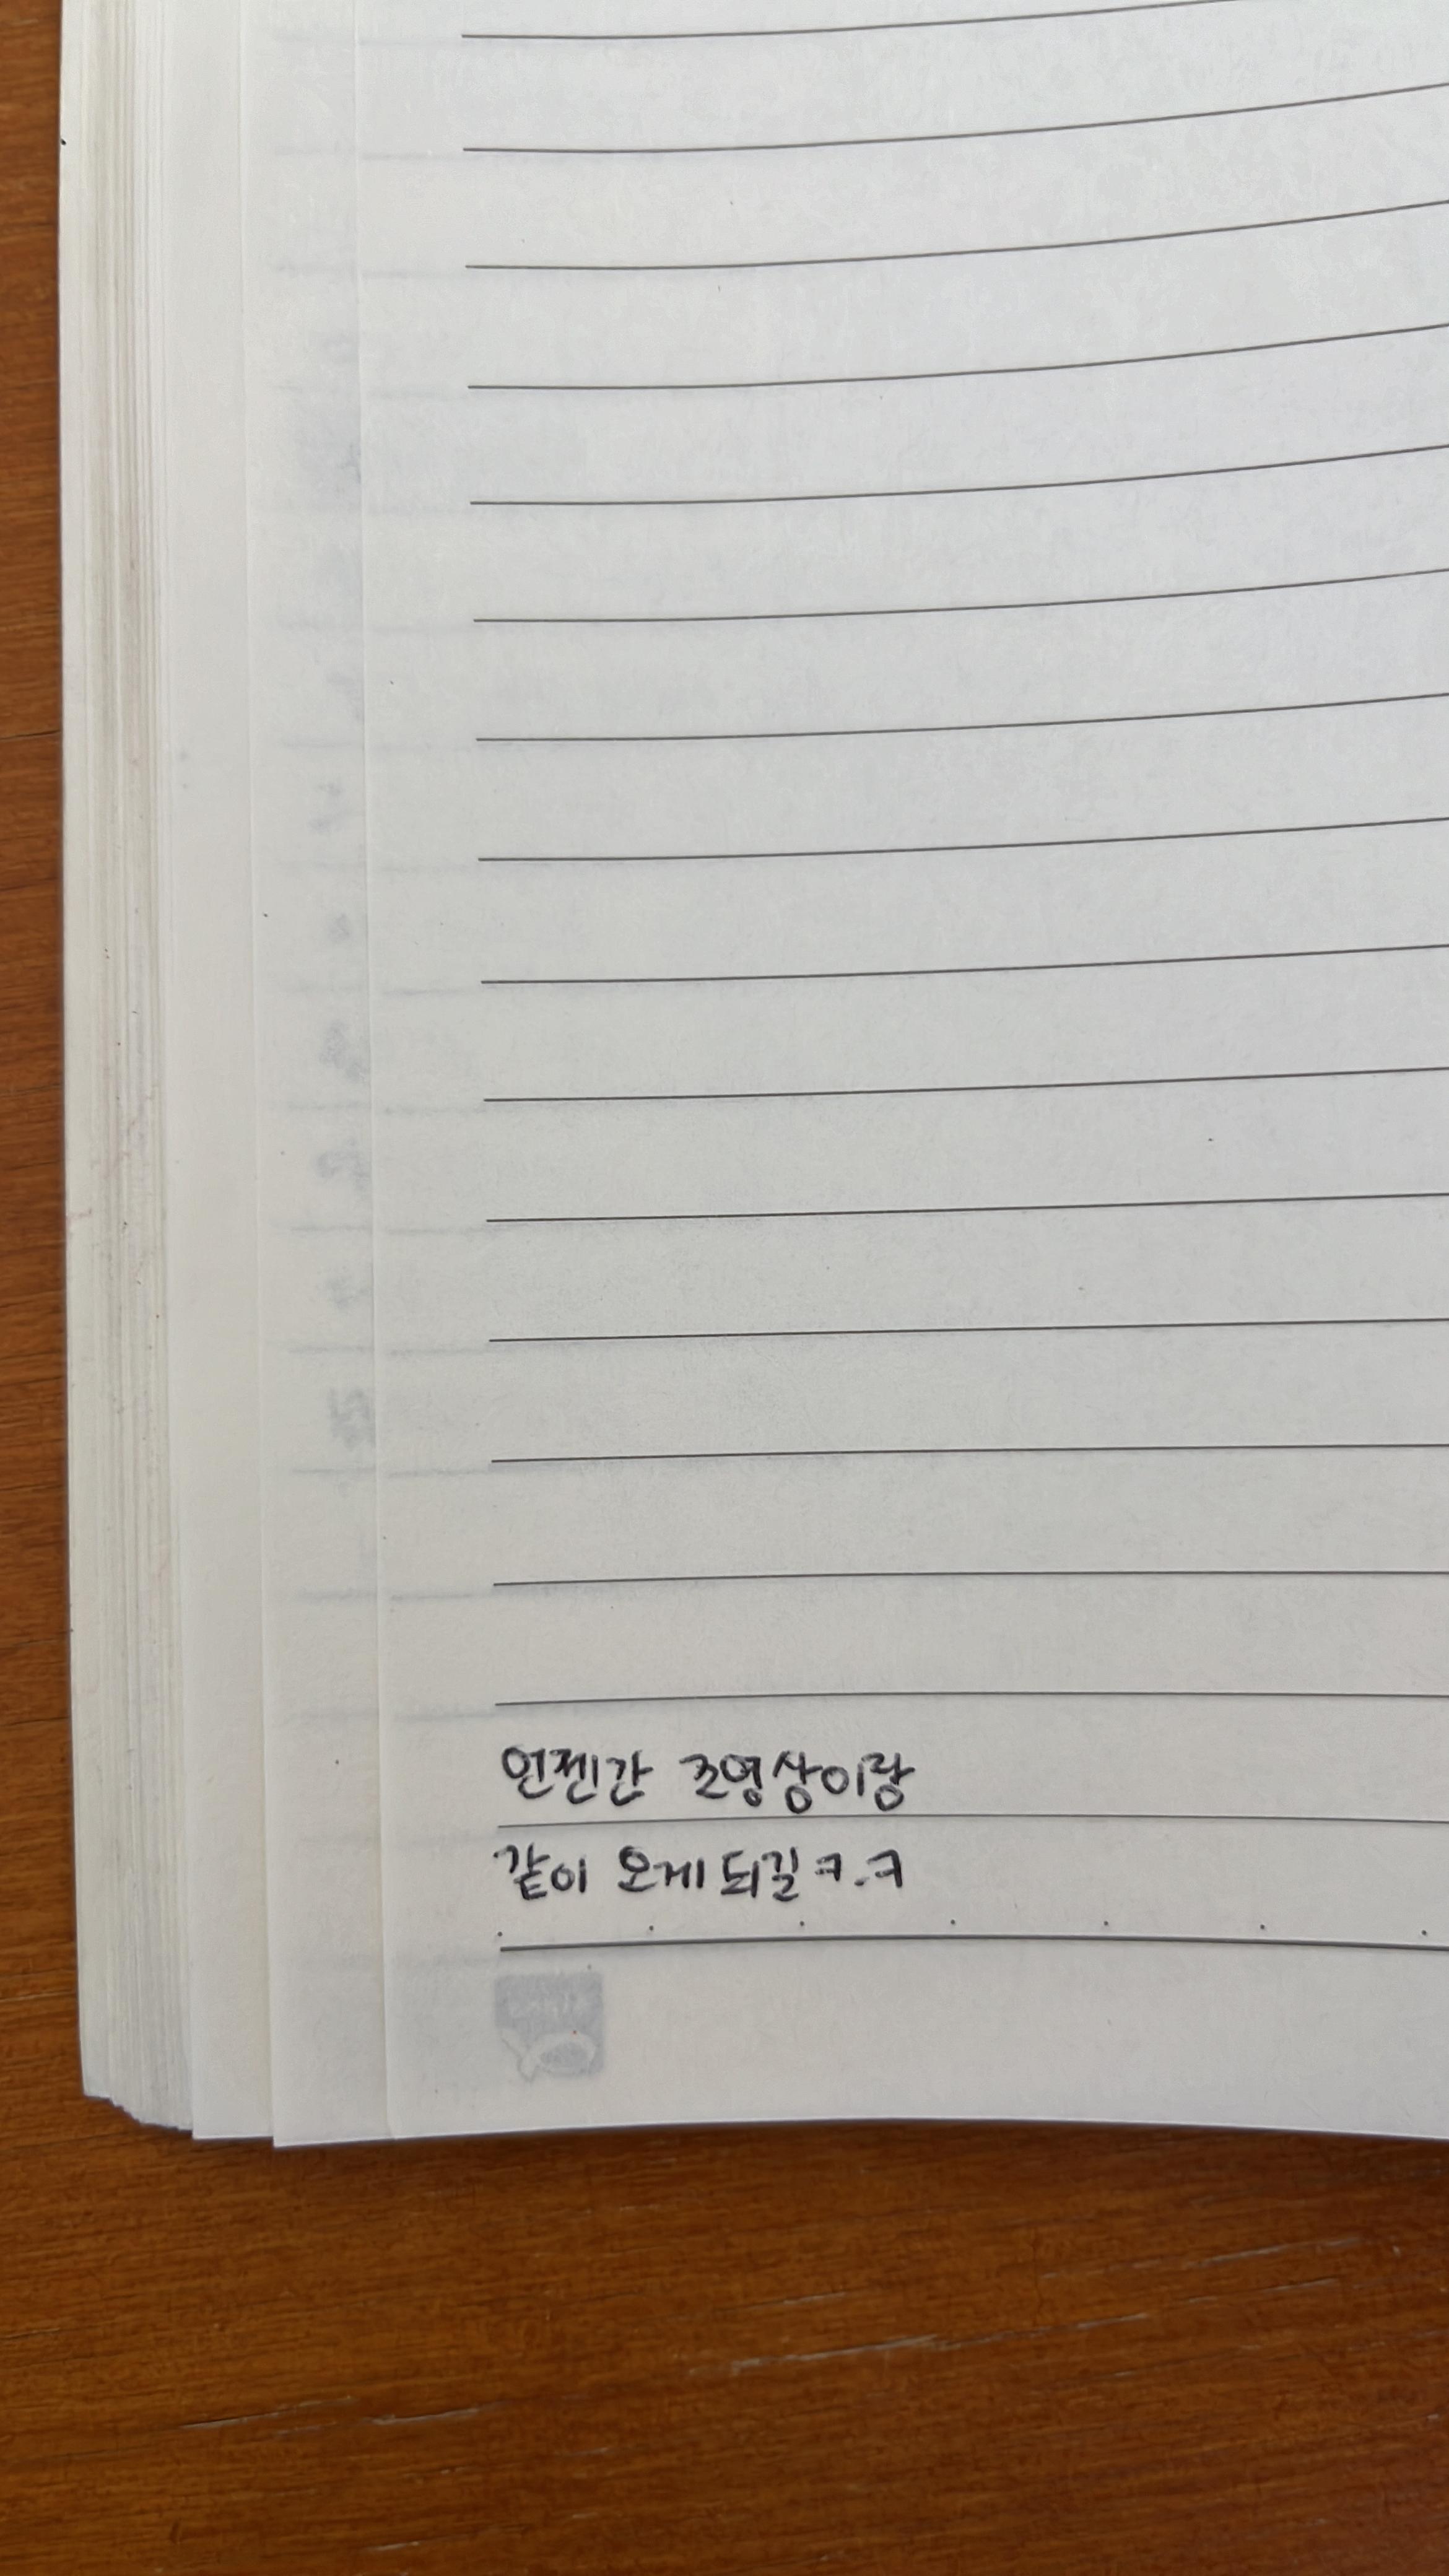 언젠간 조영상이랑
같이 오게 되길 ㅋ.ㅋ